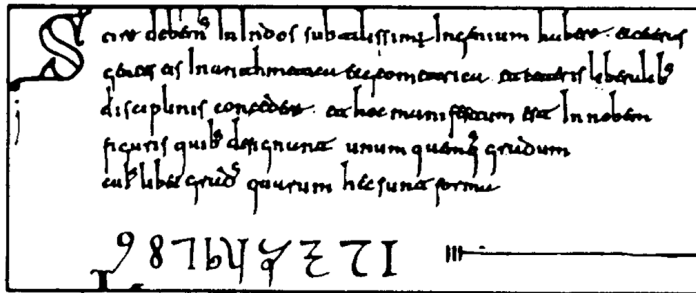 Scire debem⁹ In Indos subtilissimū Ingenium habere. et ceteras
gentes eis In arithmetica et geometrica. et ceteris liberalib⁹
disciplinis concedere. et hoc manifestum est In nobem
figuris quib⁹ designant unum quenq⁹ gradum
cui⁹libet grad⁹ quarum hec sunt forma
9 8 7 6 5 4 3 2 1